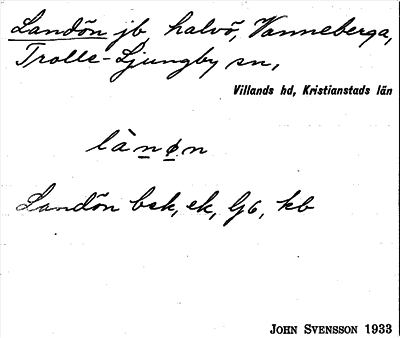 Landön jb, halvö, Vanneberga,
Trolle-Ljungby sn,
Villands hd, Kristianstads län
lànø̠n
Landön bsk, ek, Gö, kb
JOHN SVENSSON 1933